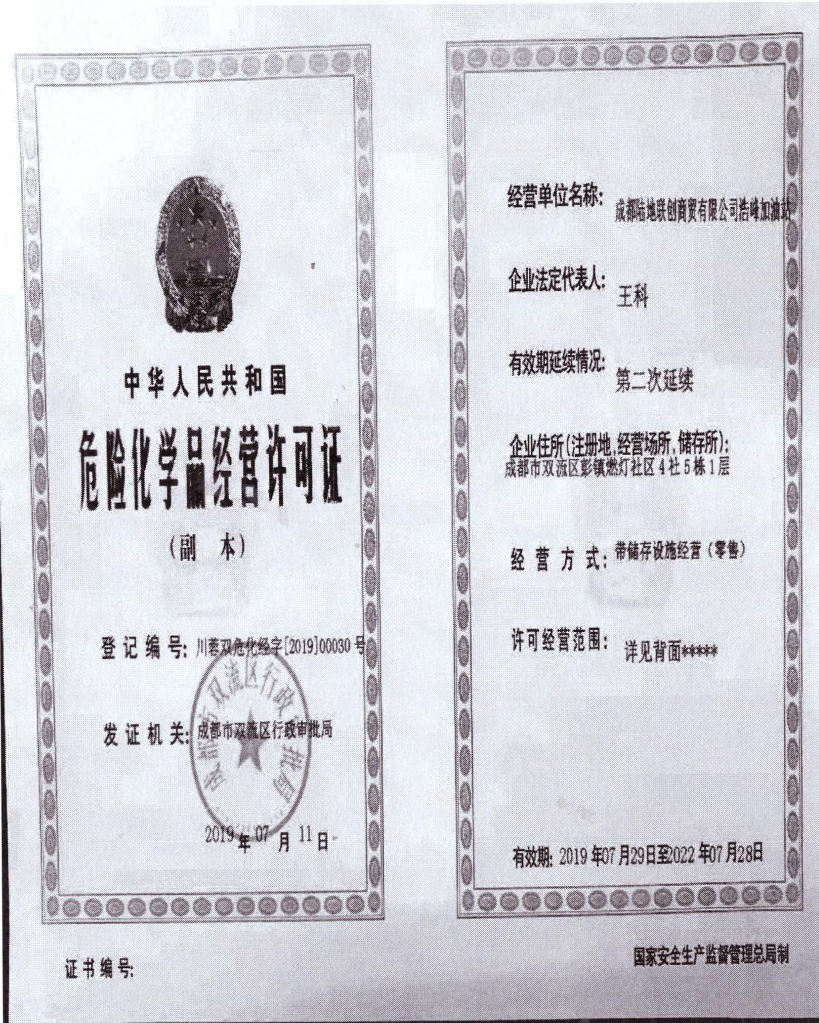 中华人民共和国
危险化学品经营许可证
(副 本)
登记编号: 川蓉双危化经字[2019]00030号
发证机关: 成都市双流区行政审批局
成都市双流区行政审批局
2019年07月11日
证书编号:
经营单位名称: 成都陆地联创商贸有限公司浩峰加油站
企业法定代表人: 王科
有效期延续情况: 第二次延续
企业住所(注册地,经营场所,储存所):
成都市双流区彭镇燃灯社区4社5栋1层
经营方式: 带储存设施经营(零售)
许可经营范围: 详见背面*****
有效期: 2019年07月29日至2022年07月28日
国家安全生产监督管理总局制